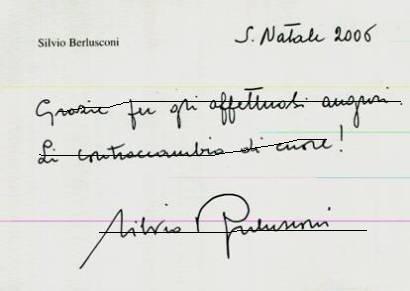 Silvio Berlusconi
S. Natale 2006
Grazie per gli affettuosi auguri.
Li contraccambio di cuore!
Silvio Berlusconi